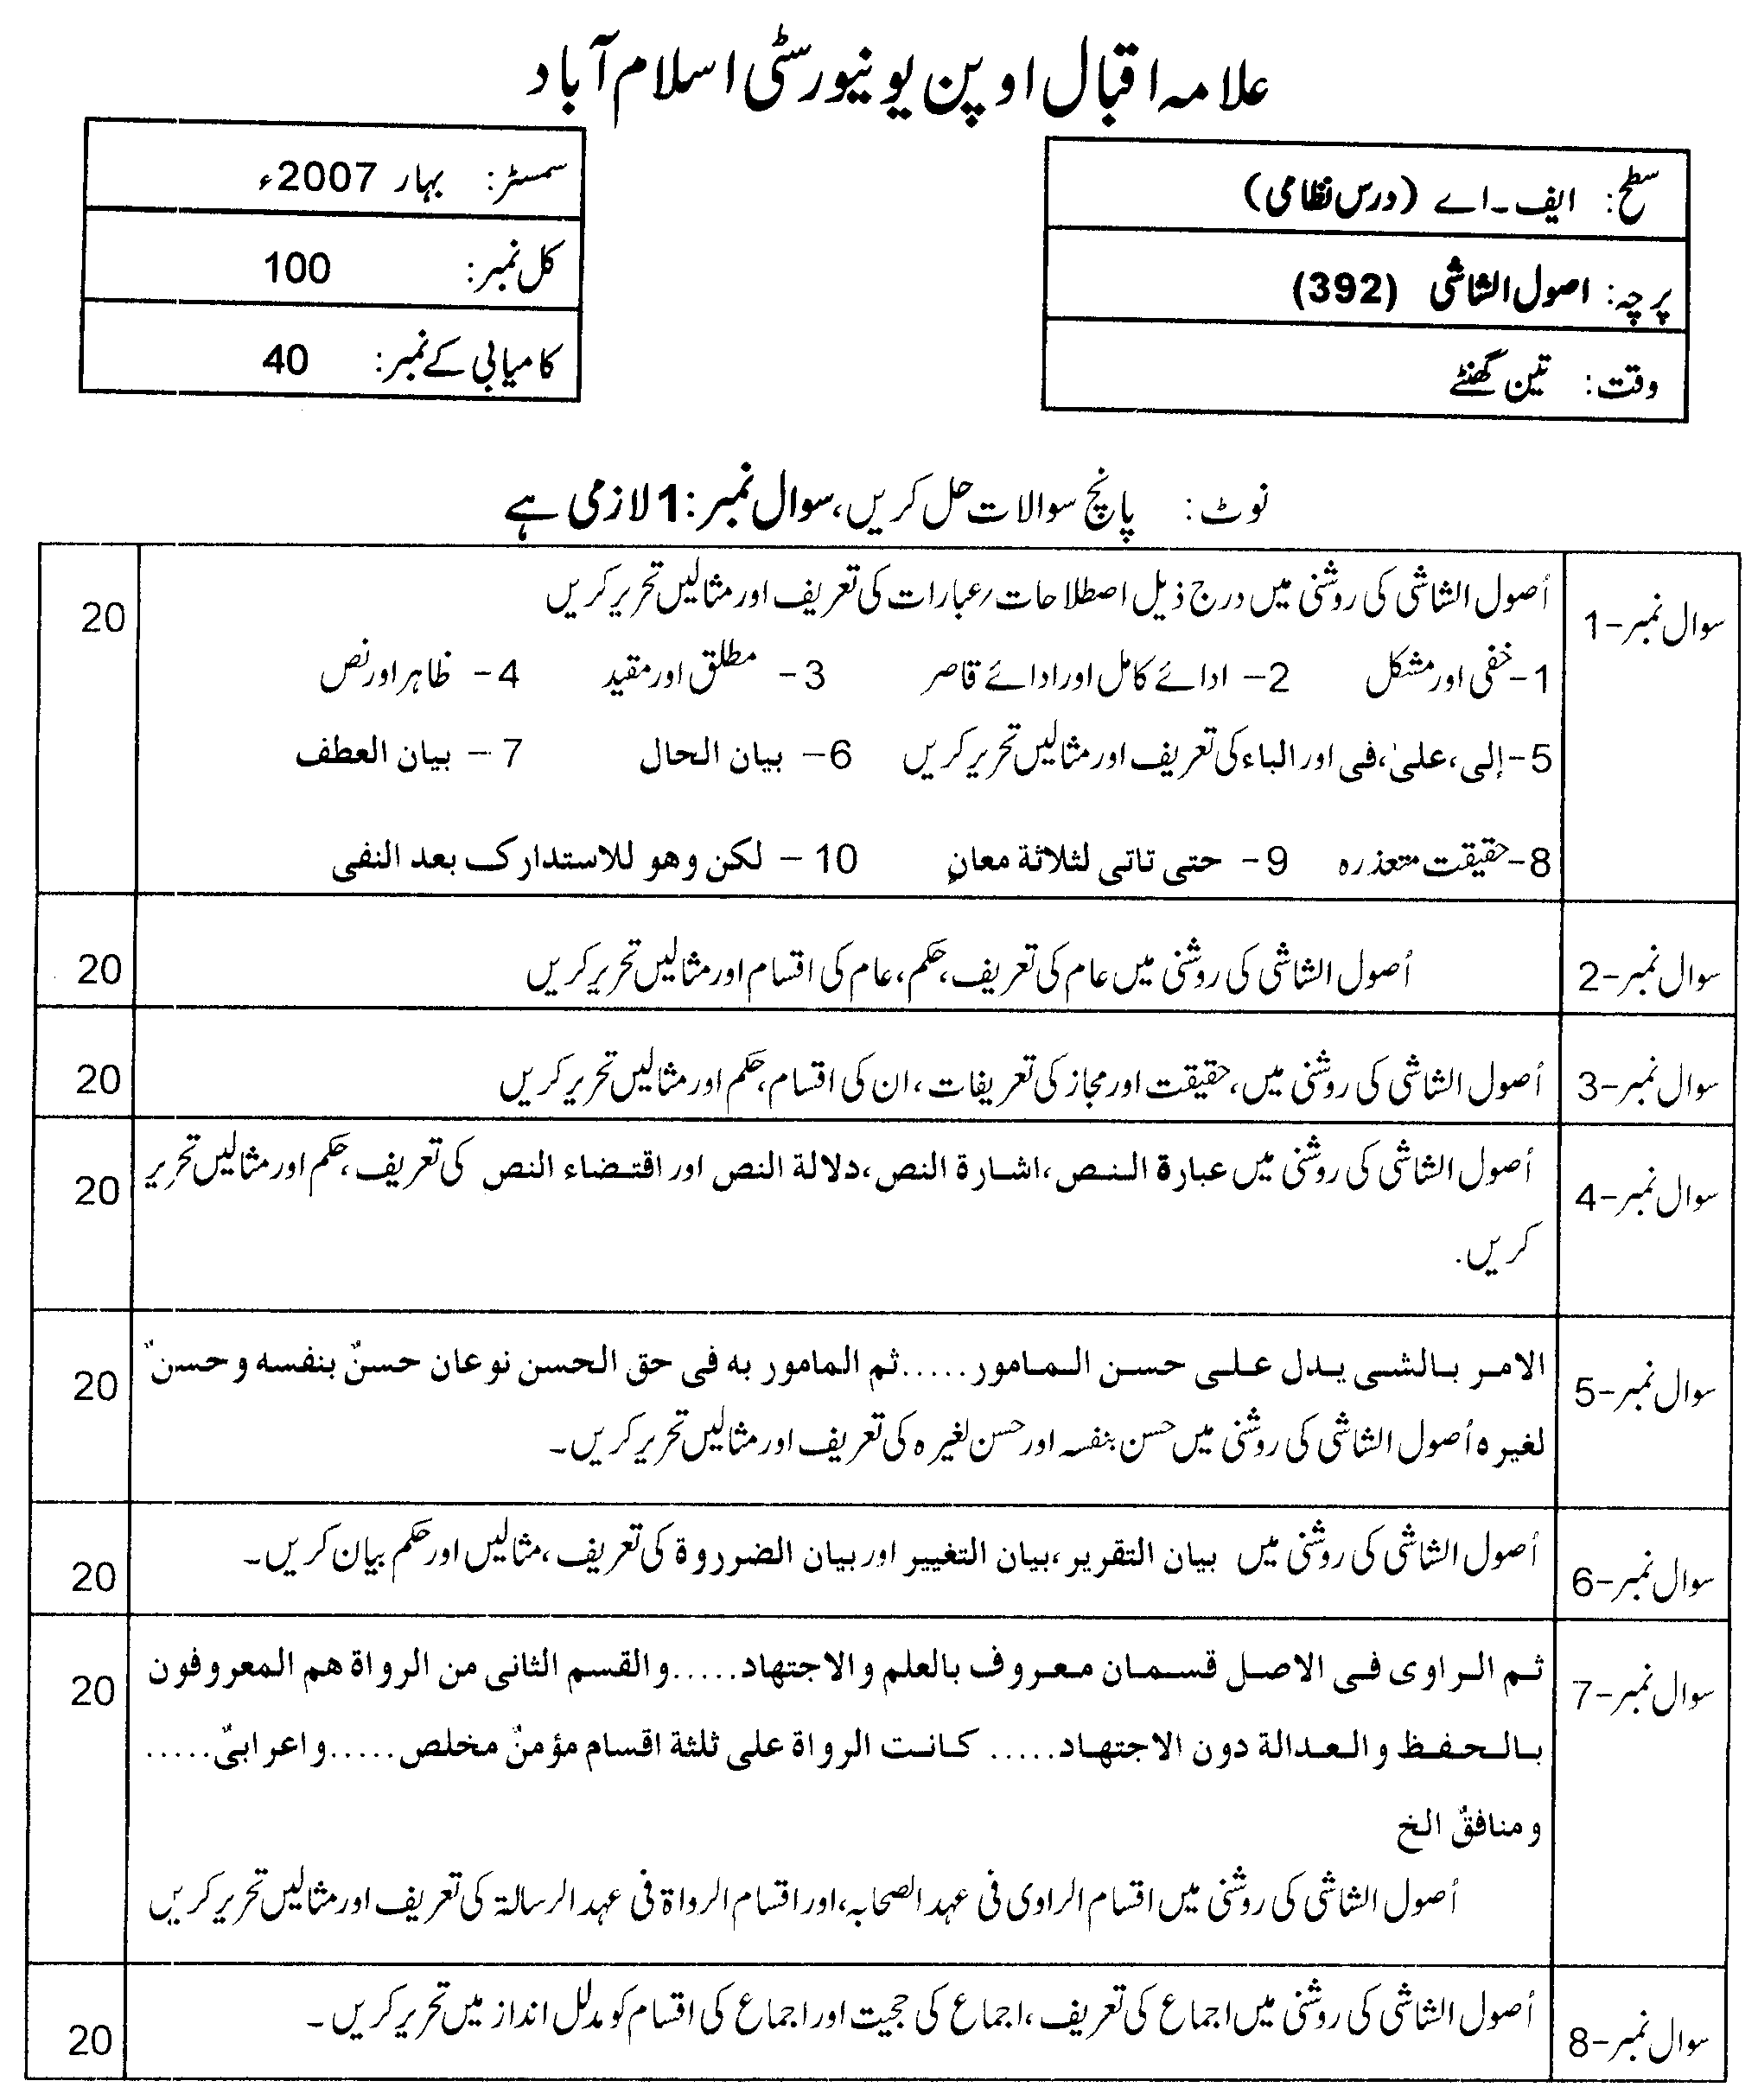 علامہ اقبال اوپن یونیورسٹی اسلام آباد
سطح: ایف۔اے (درس نظامی)
پرچہ: اصول الشاشی (392)
وقت: تین گھنٹے
سمسٹر: بہار 2007ء
کل نمبر: 100
کامیابی کے نمبر: 40
نوٹ: پانچ سوالات حل کریں، سوال نمبر: 1 لازمی ہے
سوال نمبر-1 اُصول الشاشی کی روشنی میں درج ذیل اصطلاحات/عبارات کی تعریف اور مثالیں تحریر کریں 20
1- خفی اور مشکل 2- ادائے کامل اور ادائے قاصر 3- مطلق اور مقید 4- ظاہر اور نص
5- إلی، علیٰ، فی اور الباء کی تعریف اور مثالیں تحریر کریں 6- بیان الحال 7- بیان العطف
8- حقیقت متعذرہ 9- حتی تاتی لثلاثة معانٍ 10- لکن وھو للاستدارک بعد النفی
سوال نمبر-2 اُصول الشاشی کی روشنی میں عام کی تعریف، حکم، عام کی اقسام اور مثالیں تحریر کریں 20
سوال نمبر-3 اُصول الشاشی کی روشنی میں، حقیقت اور مجاز کی تعریفات، ان کی اقسام، حکم اور مثالیں تحریر کریں 20
سوال نمبر-4 اُصول الشاشی کی روشنی میں عبارة النص، اشارة النص، دلالة النص اور اقتضاء النص کی تعریف، حکم اور مثالیں تحریر 20
کریں.
سوال نمبر-5 الامر بالشی یدل علی حسن المامور.....ثم المامور به فی حق الحسن نوعان حسنٌ بنفسه و حسنٌ 20
لغیرہ اُصول الشاشی کی روشنی میں حسن بنفسہ اور حسن لغیرہ کی تعریف اور مثالیں تحریر کریں۔
سوال نمبر-6 اُصول الشاشی کی روشنی میں بیان التقریر، بیان التغییر اور بیان الضرروة کی تعریف، مثالیں اور حکم بیان کریں۔ 20
سوال نمبر-7 ثم الراوی فی الاصل قسمان معروف بالعلم والاجتهاد.....والقسم الثانی من الرواة هم المعروفون 20
بالحفظ والعدالة دون الاجتهاد..... کانت الرواة علی ثلثة اقسام مؤمنٌ مخلص.....واعرابیٌ.....
ومنافقٌ الخ
اُصول الشاشی کی روشنی میں اقسام الراوی فی عہد الصحابہ، اور اقسام الرواة فی عہد الرسالة کی تعریف اور مثالیں تحریر کریں
سوال نمبر-8 اُصول الشاشی کی روشنی میں اجماع کی تعریف، اجماع کی حجیت اور اجماع کی اقسام کو مدلل انداز میں تحریر کریں۔ 20